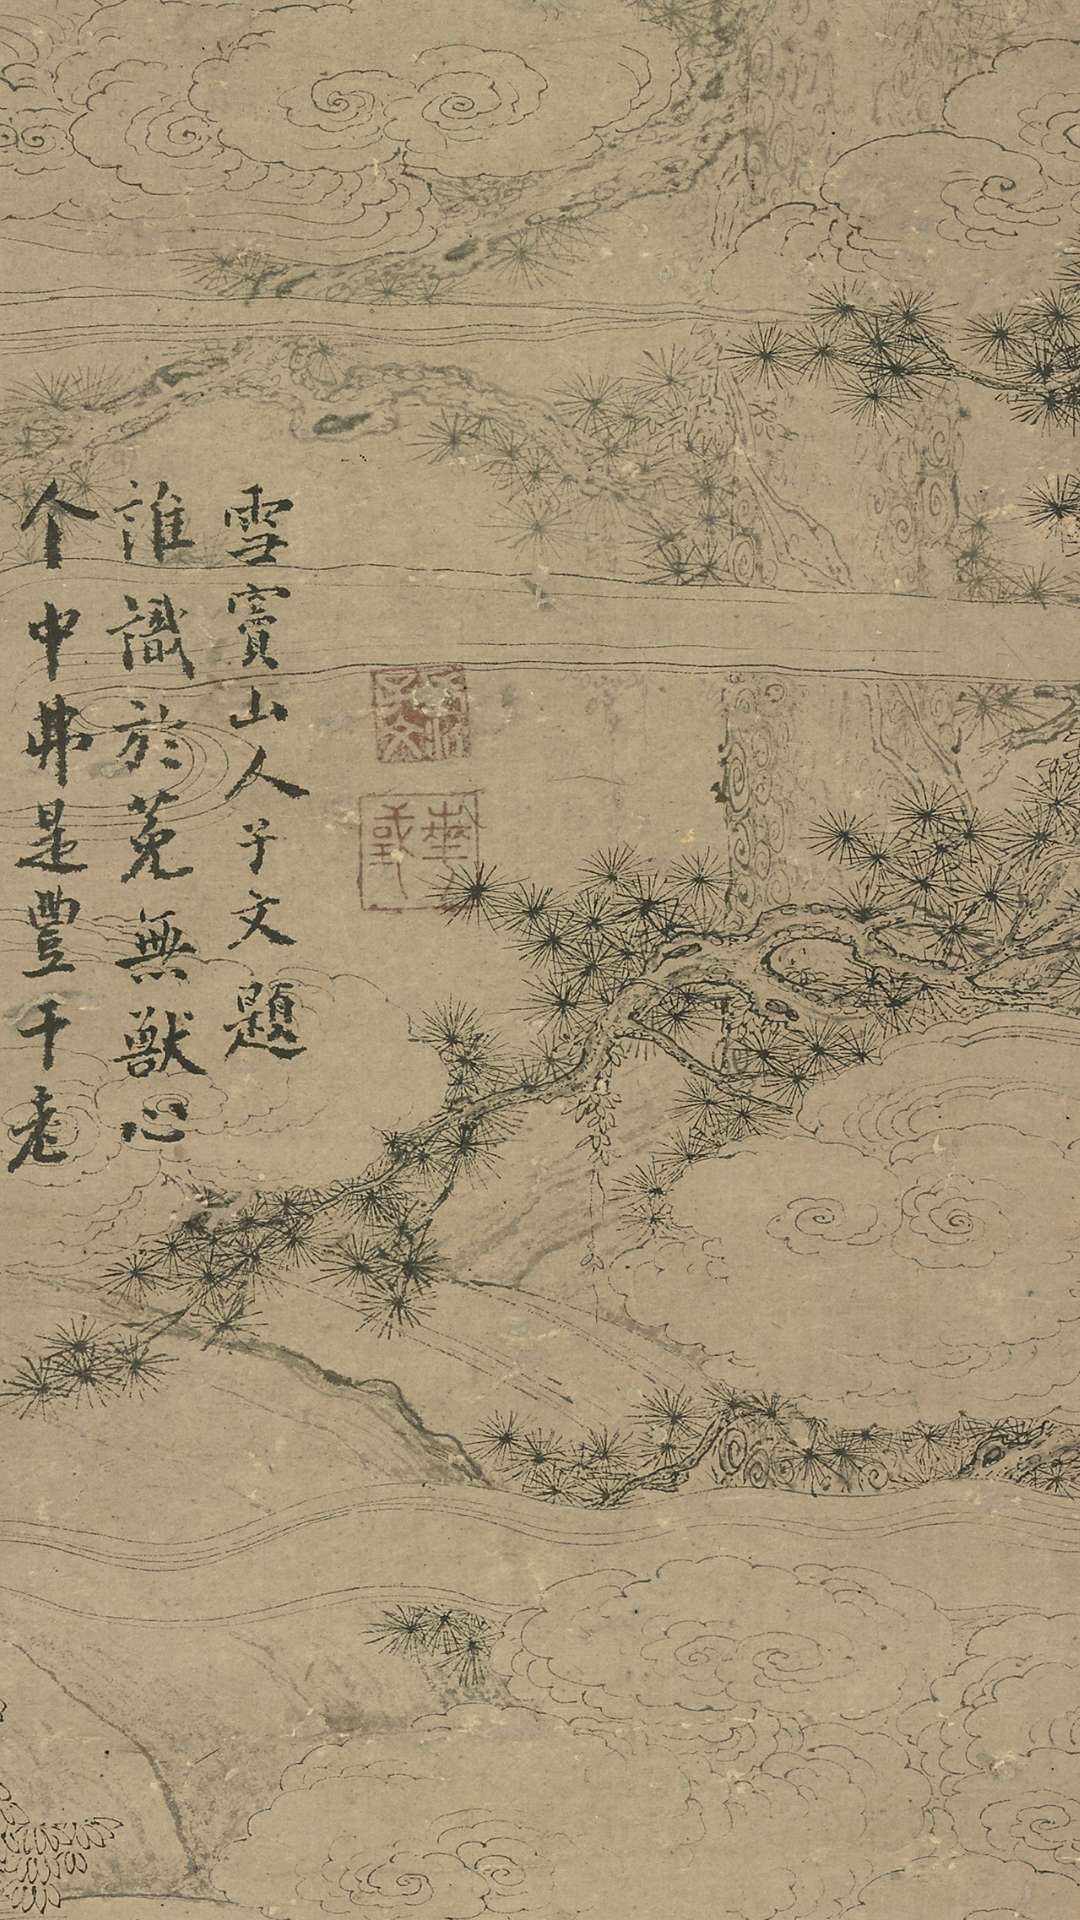 个中弗是豐干老
誰識於菟無獸心
雪竇山人子文題